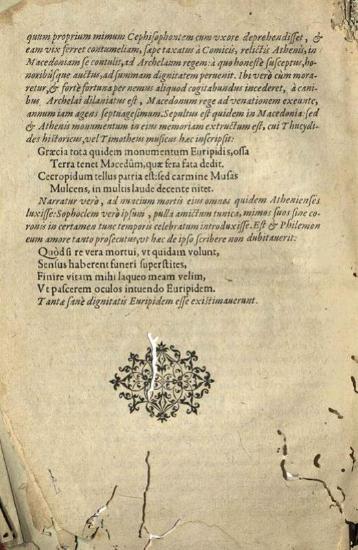 quum proprium mimum Cephisophontem cum vxore deprehendisset, &
eam vix ferret contumeliam, sæpe taxatus à Comicis, relictis Athenis, in
Macedoniam se contulit, ad Archelaum regem: à quo honestè susceptus, ho-
noribusque auctus, ad summam dignitatem peruenit. Ibi verò cùm mora-
retur, & fortè fortuna per nemus aliquod cogitabundus incederet, à cani-
bus Archelai dilaniatus est, Macedonum rege ad venationem exeunte,
annum iam agens septuagesimum. Sepultus est quidem in Macedonia: sed
& Athenis monumentum in eius memoriam extructum est, cui Thucydi-
des historicus, vel Timotheus musicus hæc inscripsit:
Græcia tota quidem monumentum Euripidis, ossa
Terra tenet Macedûm, quæ fera fata dedit.
Cecropidum tellus patria est: sed carmine Musas
Mulcens, in multis laude decente nitet.
Narratur verò, ad nuncium mortis eius omnes quidem Athenienses
luxisse: Sophoclem verò ipsum, pulla amictum tunica, mimos suos sine co-
ronis in certamen tunc temporis celebratum introduxisse. Est & Philemon
eum amore tanto prosecutus, vt hæc de ipso scribere non dubitauerit:
Quòd si re vera mortui, vt quidam volunt,
Sensus haberent funeri superstites,
Finire vitam mihi laqueo meam velim,
Vt pascerem oculos intuendo Euripidem.
Tantæ sanè dignitatis Euripidem esse existimauerunt.